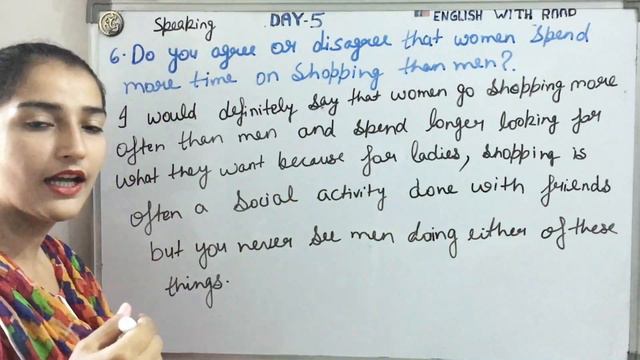 Speaking DAY-5 ENGLISH WITH RAAD
6. Do you agree or disagree that women spend
more time on shopping than men?
I would definitely say that women go shopping more
often than men and spend longer looking for
what they want because for ladies, shopping is
often a social activity done with friends
but you never see men doing either of these
things.